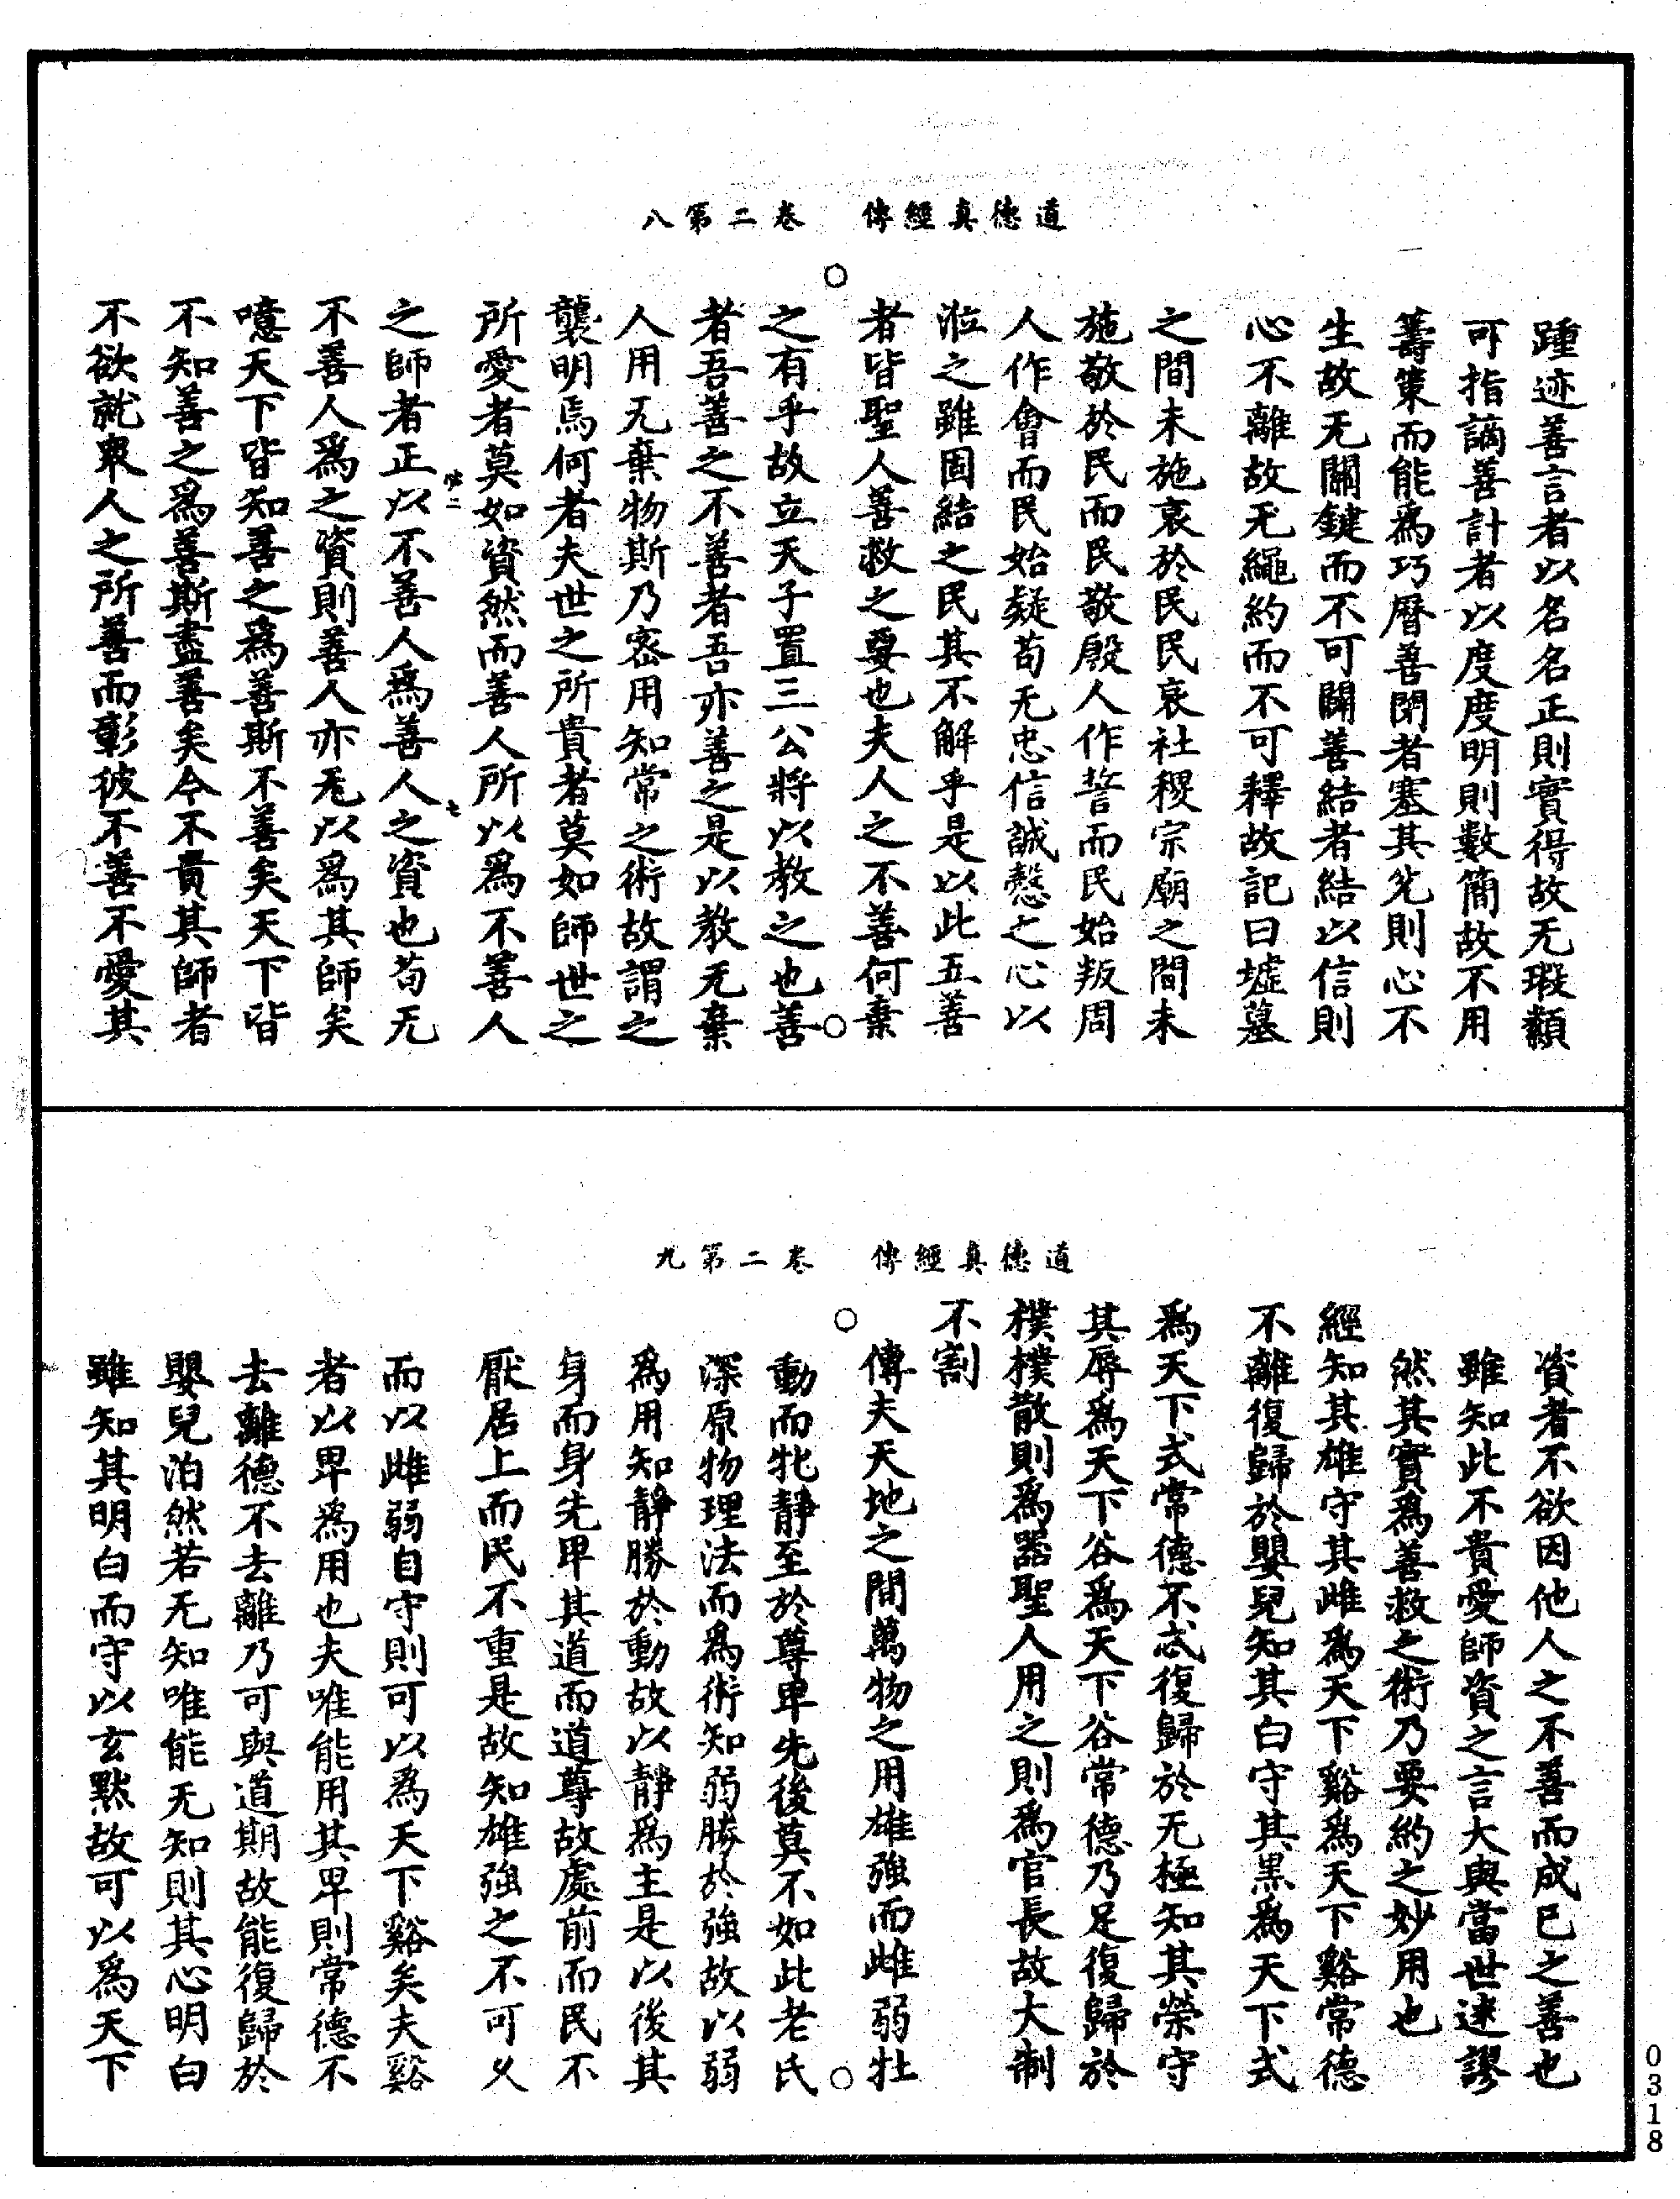 道德真經傳　卷二第八
踵迹善言者以名名正則實得故无瑕纇
可指謫善計者以度度明則數簡故不用
籌策而能爲巧曆善閉者塞其兊則心不
生故无關鍵而不可開善結者結以信則
心不離故无繩約而不可釋故記曰墟墓
之間未施哀於民民哀社稷宗廟之間未
施敬於民而民敬殷人作誓而民始叛周
人作會而民始疑苟无忠信誠慤之心以
涖之雖固結之民其不解乎是以此五善
者皆聖人善救之要也夫人之不善何棄
之有乎故立天子置三公將以教之也善
者吾善之不善者吾亦善之是以教无棄
人用无棄物斯乃密用知常之術故謂之
襲明焉何者夫世之所貴者莫如師世之
所愛者莫如資然而善人所以爲不善人
之師者正以不善人爲善人之資也苟无
不善人爲之資則善人亦无以爲其師矣
噫天下皆知善之爲善斯不善矣天下皆
不知善之爲善斯盡善矣今不貴其師者
不欲就衆人之所善而彰彼不善不愛其
道德真經傳　卷二第九
資者不欲因他人之不善而成已之善也
雖知此不貴愛師資之言大與當世迷謬
然其實爲善救之術乃要約之妙用也
經知其雄守其雌爲天下谿爲天下谿常德
不離復歸於嬰兒知其白守其黑爲天下式
爲天下式常德不忒復歸於无極知其榮守
其辱爲天下谷爲天下谷常德乃足復歸於
樸樸散則爲器聖人用之則爲官長故大制
不割
傳夫天地之間萬物之用雄強而雌弱牡
動而牝靜至於尊卑先後莫不如此老氏
深原物理法而爲術知弱勝於強故以弱
爲用知靜勝於動故以靜爲主是以後其
身而身先卑其道而道尊故處前而民不
厭居上而民不重是故知雄強之不可久
而以雌弱自守則可以爲天下谿矣夫谿
者以卑爲用也夫唯能用其卑則常德不
去離德不去離乃可與道期故能復歸於
嬰兒泊然若无知唯能无知則其心明白
雖知其明白而守以玄默故可以爲天下
0318